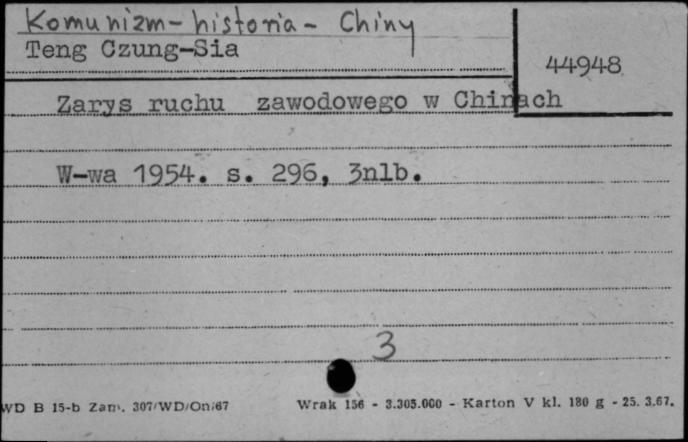 Komunizm - historia - Chiny
Teng Czung-Sia
44948
Zarys ruchu zawodowego w Chinach
W-wa 1954. s. 296, 3nlb.
3
WD B 15-b Zam. 307/WD/On/67 Wrak 156 - 3.305.000 - Karton V kl. 180 g - 25. 3.67.